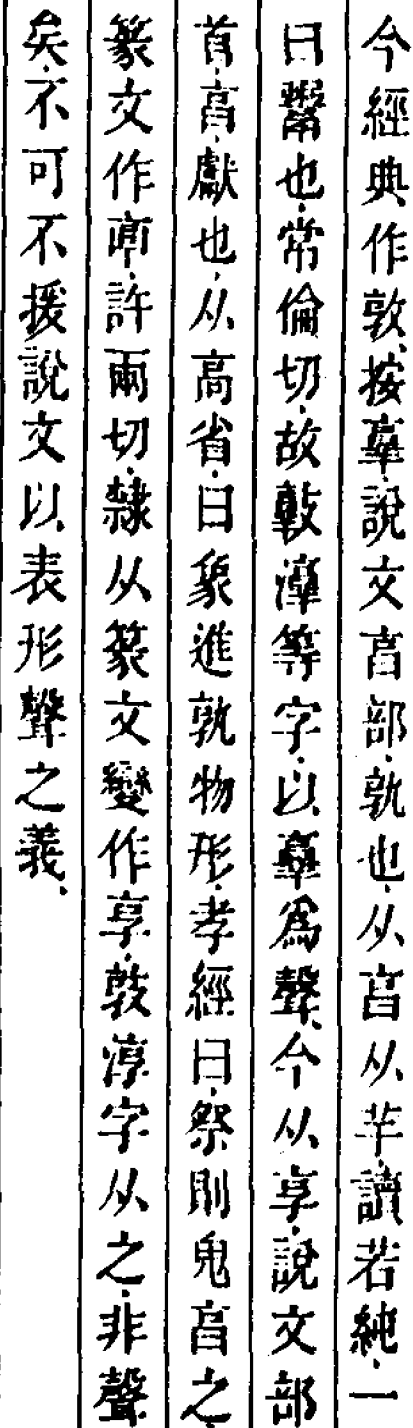 今經典作敦、按𦎫說文亯部、孰也、从亯从羊、讀若純、一
曰鬻也、常倫切、故等字、以𦎫爲聲、今从享、說文部
首亯、獻也、从高省、曰象進孰物形、孝經曰、祭則鬼亯之、
篆文作、許兩切、隸从篆文變作享、敦淳字从之、非聲
矣、不可不援說文以表形聲之義、